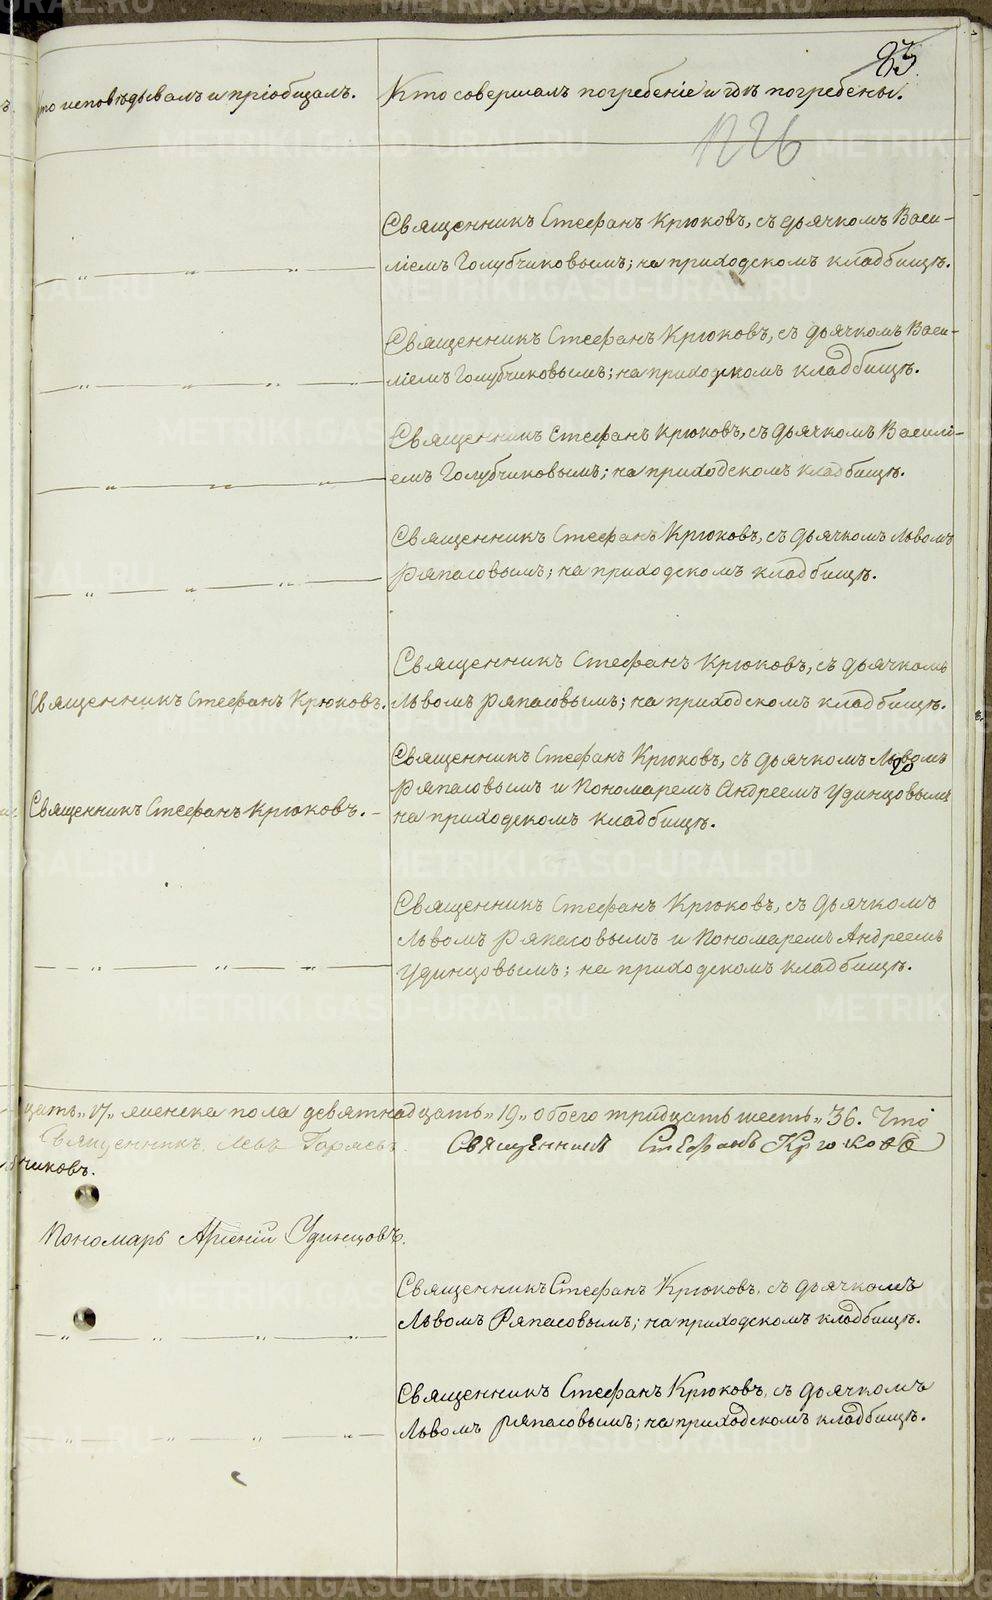 83.
Кто исповѣдывалъ и пріобщалъ.
Кто совершалъ погребеніе и гдѣ погребены.
Священникъ Стефанъ Крюковъ, съ дьячкомъ Васи-
ліемъ Голубчиковымъ; на приходскомъ кладбищѣ.
Священникъ Стефанъ Крюковъ, съ дьячкомъ Васи-
ліемъ Голубчиковымъ; на приходскомъ кладбищѣ.
Священникъ Стефанъ Крюковъ, съ дьячкомъ Василі-
емъ Голубчиковымъ; на приходскомъ кладбищѣ.
Священникъ Стефанъ Крюковъ, съ дьячкомъ Львомъ
Ряпасовымъ; на приходскомъ кладбищѣ.
Священникъ Стефанъ Крюковъ.
Священникъ Стефанъ Крюковъ, съ дьячкомъ
Львомъ Ряпасовымъ; на приходскомъ кладбищѣ.
Священникъ Стефанъ Крюковъ. –
Священникъ Стефанъ Крюковъ, съ дьячкомъ Львомъ
Ряпасовымъ и Пономаремъ Андреемъ Удинцовымъ
на приходскомъ кладбищѣ.
Священникъ Стефанъ Крюковъ, съ дьячкомъ
Львомъ Ряпасовымъ и Пономаремъ Андреемъ
Удинцовымъ; на приходскомъ кладбищѣ.
цать „17„ женска пола девятнадцать „19„ обоего тридцать шесть „36. Что
Священникъ Левъ Священникъ Стефанъ Крюковъ
чиковъ.
Пономарь Арсеній Удинцовъ.
Священникъ Стефанъ Крюковъ, съ дьячкомъ
Львомъ Ряпасовымъ; на приходскомъ кладбищѣ.
Священникъ Стефанъ Крюковъ, съ дьячкомъ
Львомъ Ряпасовымъ; на приходскомъ кладбищѣ.
METRIKI.GASO-URAL.RU